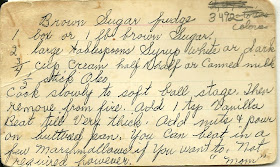 Brown Sugar fudge
1 box or 1 lb. brown Sugar,
2 large tablespoons Syrup White or dark
3/4 cup Cream half & half or Canned milk
1/2 stick Oleo
Cook slowly to soft ball stage. Then
remove from fire. Add 1 tsp Vanilla
Beat till Very thick. Add nuts & pour
on buttered pans. You Can beat in a
few Marshmallows if you want to, Not
required however. "Mom